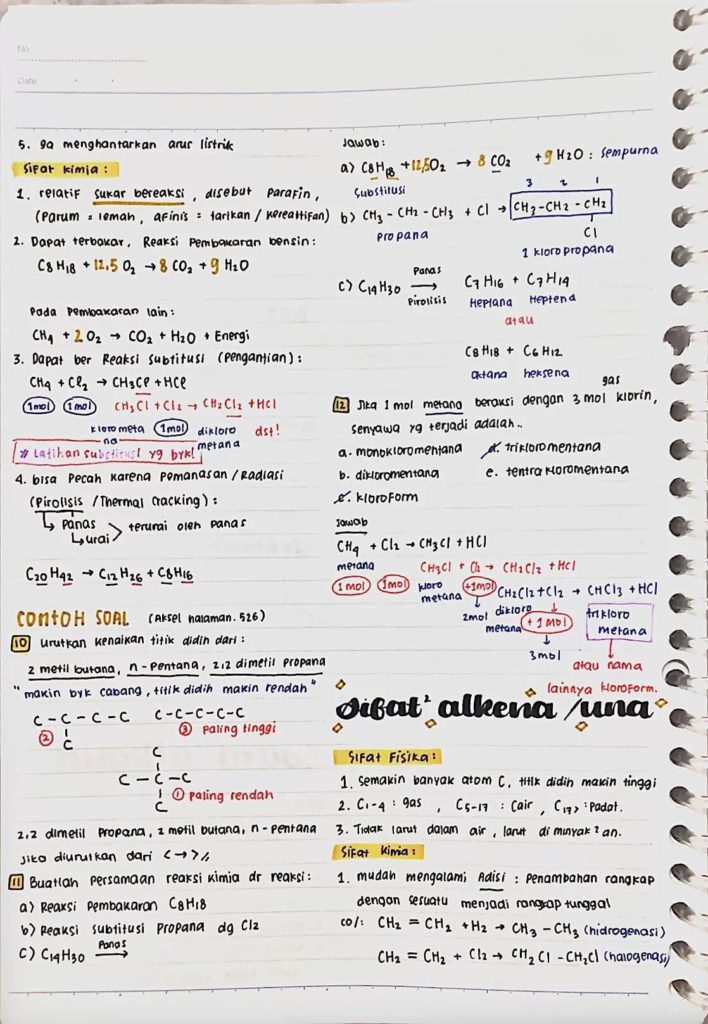 No.
Date
5. ga menghantarkan arus listrik
Sifat kimia :
1. relatif sukar bereaksi, disebut parafin,
(Parum = lemah, afinis = tarikan / kereaktifan)
2. Dapat terbakar, Reaksi Pembakaran bensin:
C8H18 + 12,5 O2 → 8 CO2 + 9 H2O
Pada Pembakaran lain:
CH4 + 2 O2 → CO2 + H2O + Energi
3. Dapat ber Reaksi Subtitusi (Pengantian) :
CH4 + Cl2 → CH3Cl + HCl
1mol 1mol CH3Cl + Cl2 → CH2Cl2 + HCl
klorometa 1mol dikloro dst!
na metana
# Latihan substitusi yg byk!
4. bisa Pecah karena Pemanasan / Radiasi
(Pirolisis / Thermal Cracking) :
↳ Panas
↳ urai > terurai oleh panas
C20H42 → C12H26 + C8H16
CONTOH SOAL (Aksel halaman. 526)
10 Urutkan kenaikan titik didih dari :
2 metil butana, n-pentana, 2,2 dimetil propana
"makin byk cabang, titik didih makin rendah"
C - C - C - C C-C-C-C-C
② C ③ Paling tinggi
C
C - C - C
C ① Paling rendah
2,2 dimetil Propana, 2 metil butana, n-pentana
Jika diurutkan dari < → > //
11 Buatlah Persamaan reaksi kimia dr reaksi :
a) Reaksi Pembakaran C8H18
b) Reaksi Subtitusi Propana dg Cl2
C) C14H30 Panas →
Jawab:
a) C8H18 + 12,5O2 → 8 CO2 + 9 H2O : sempurna
Substitusi 3 2 1
b) CH3 - CH2 - CH3 + Cl → CH3 - CH2 - CH2
Propana Cl
1 kloropropana
C) C14H30 Panas → Pirolisis C7H16 + C7H14
Heptana Heptena
atau
C8H18 + C6H12
oktana heksena
gas
12 Jika 1 mol metana beraksi dengan 3 mol klorin,
senyawa yg terjadi adalah..
a. monokloromentana d. trikloromentana
b. dikloromentana e. tentra kloromentana
c. kloroform
Jawab
CH4 + Cl2 → CH3Cl + HCl
metana CH3Cl + Cl2 → CH2Cl2 + HCl
1 mol 1mol kloro +1mol CH2Cl2 + Cl2 → CHCl3 + HCl
metana 2mol dikloro trikloro
metana +1 Mol metana
3 mol
atau nama
lainnya kloroform.
Sifat² alkena /una
Sifat Fisika :
1. Semakin banyak atom C, titik didih makin tinggi
2. C1-4 : gas , C5-17 : Cair , C17> : Padat.
3. Tidak larut dalam air, larut di minyak²an.
Sifat Kimia :
1. mudah mengalami Adisi : Penambahan rangkap
dengan sesuatu menjadi rangkap tunggal
co/: CH2 = CH2 + H2 → CH3 - CH3 (hidrogenasi)
CH2 = CH2 + Cl2 → CH2 Cl - CH2Cl (halogenasi)